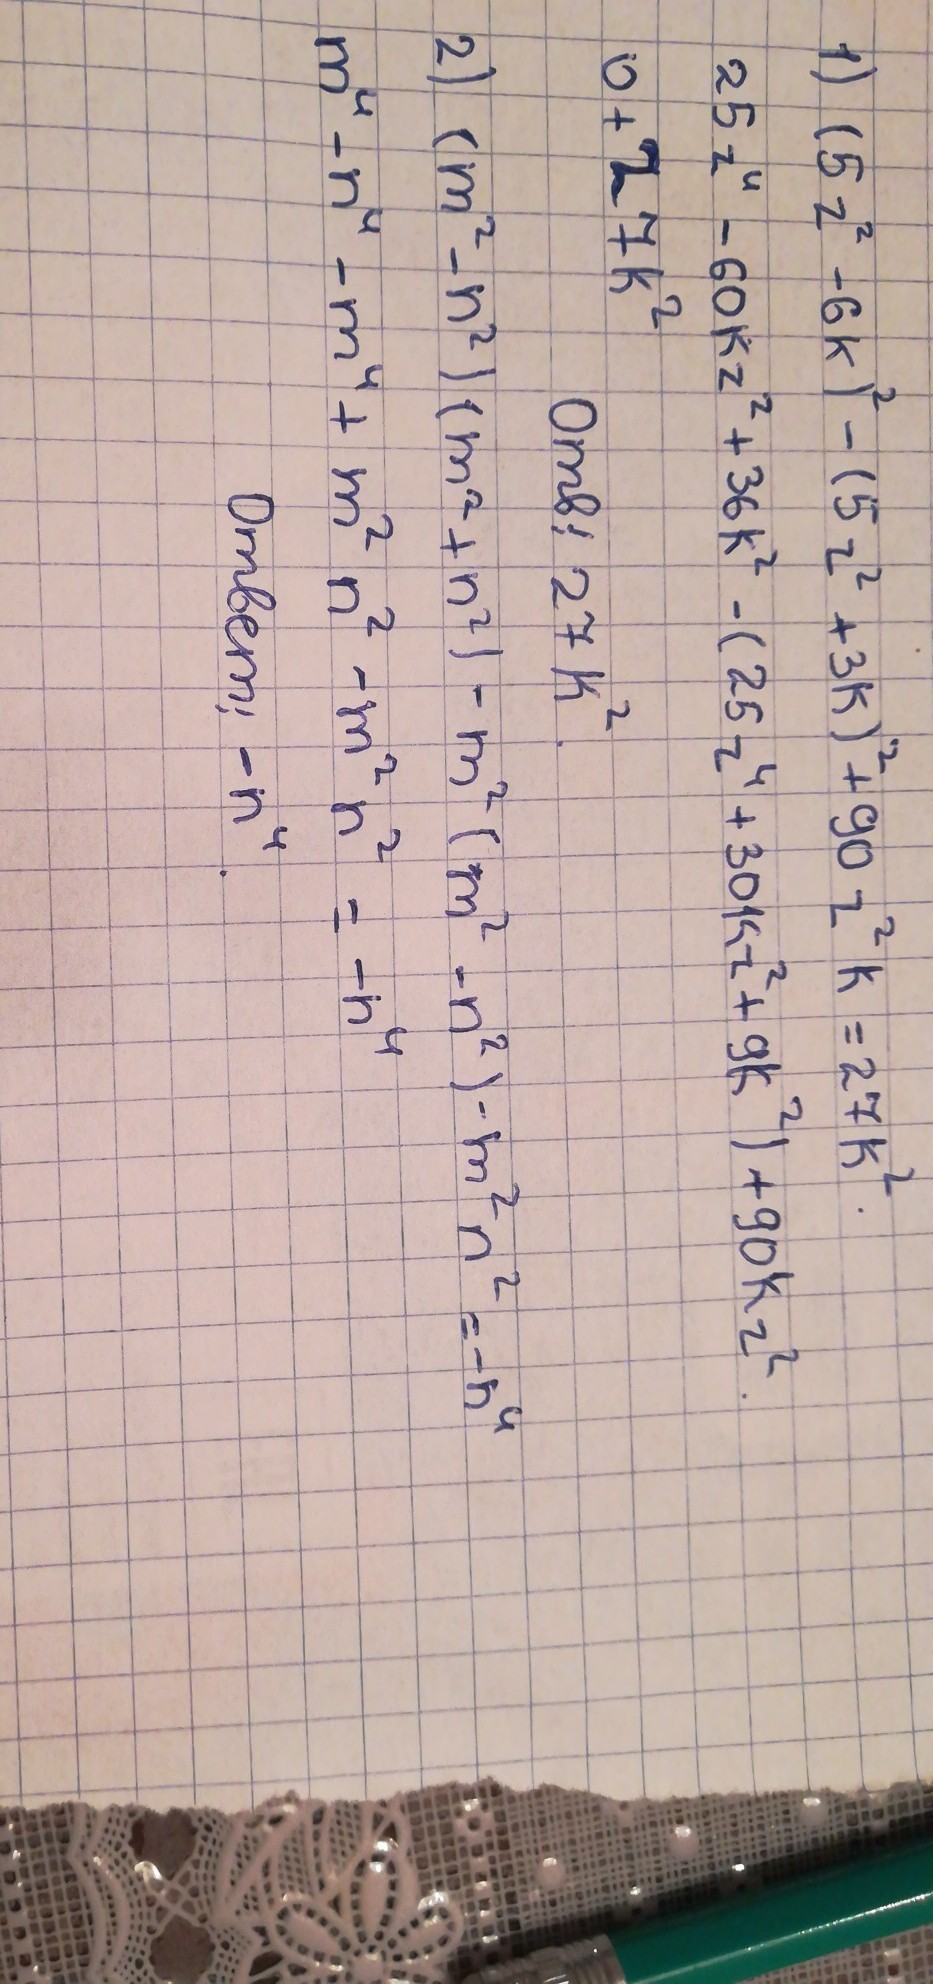 1) (5z² -6k)² - (5z² +3k)² +90z²k =27k².
25z⁴ -60kz² +36k² -(25z⁴ +30kz² +9k²) +90kz².
0+27k²
Отв: 27k².
2) (m² -n²) (m² +n²) - m² (m² -n²) - m²n² =-n⁴
m⁴ -n⁴ -m⁴ + m²n² -m²n² = -n⁴
Ответ: -n⁴.